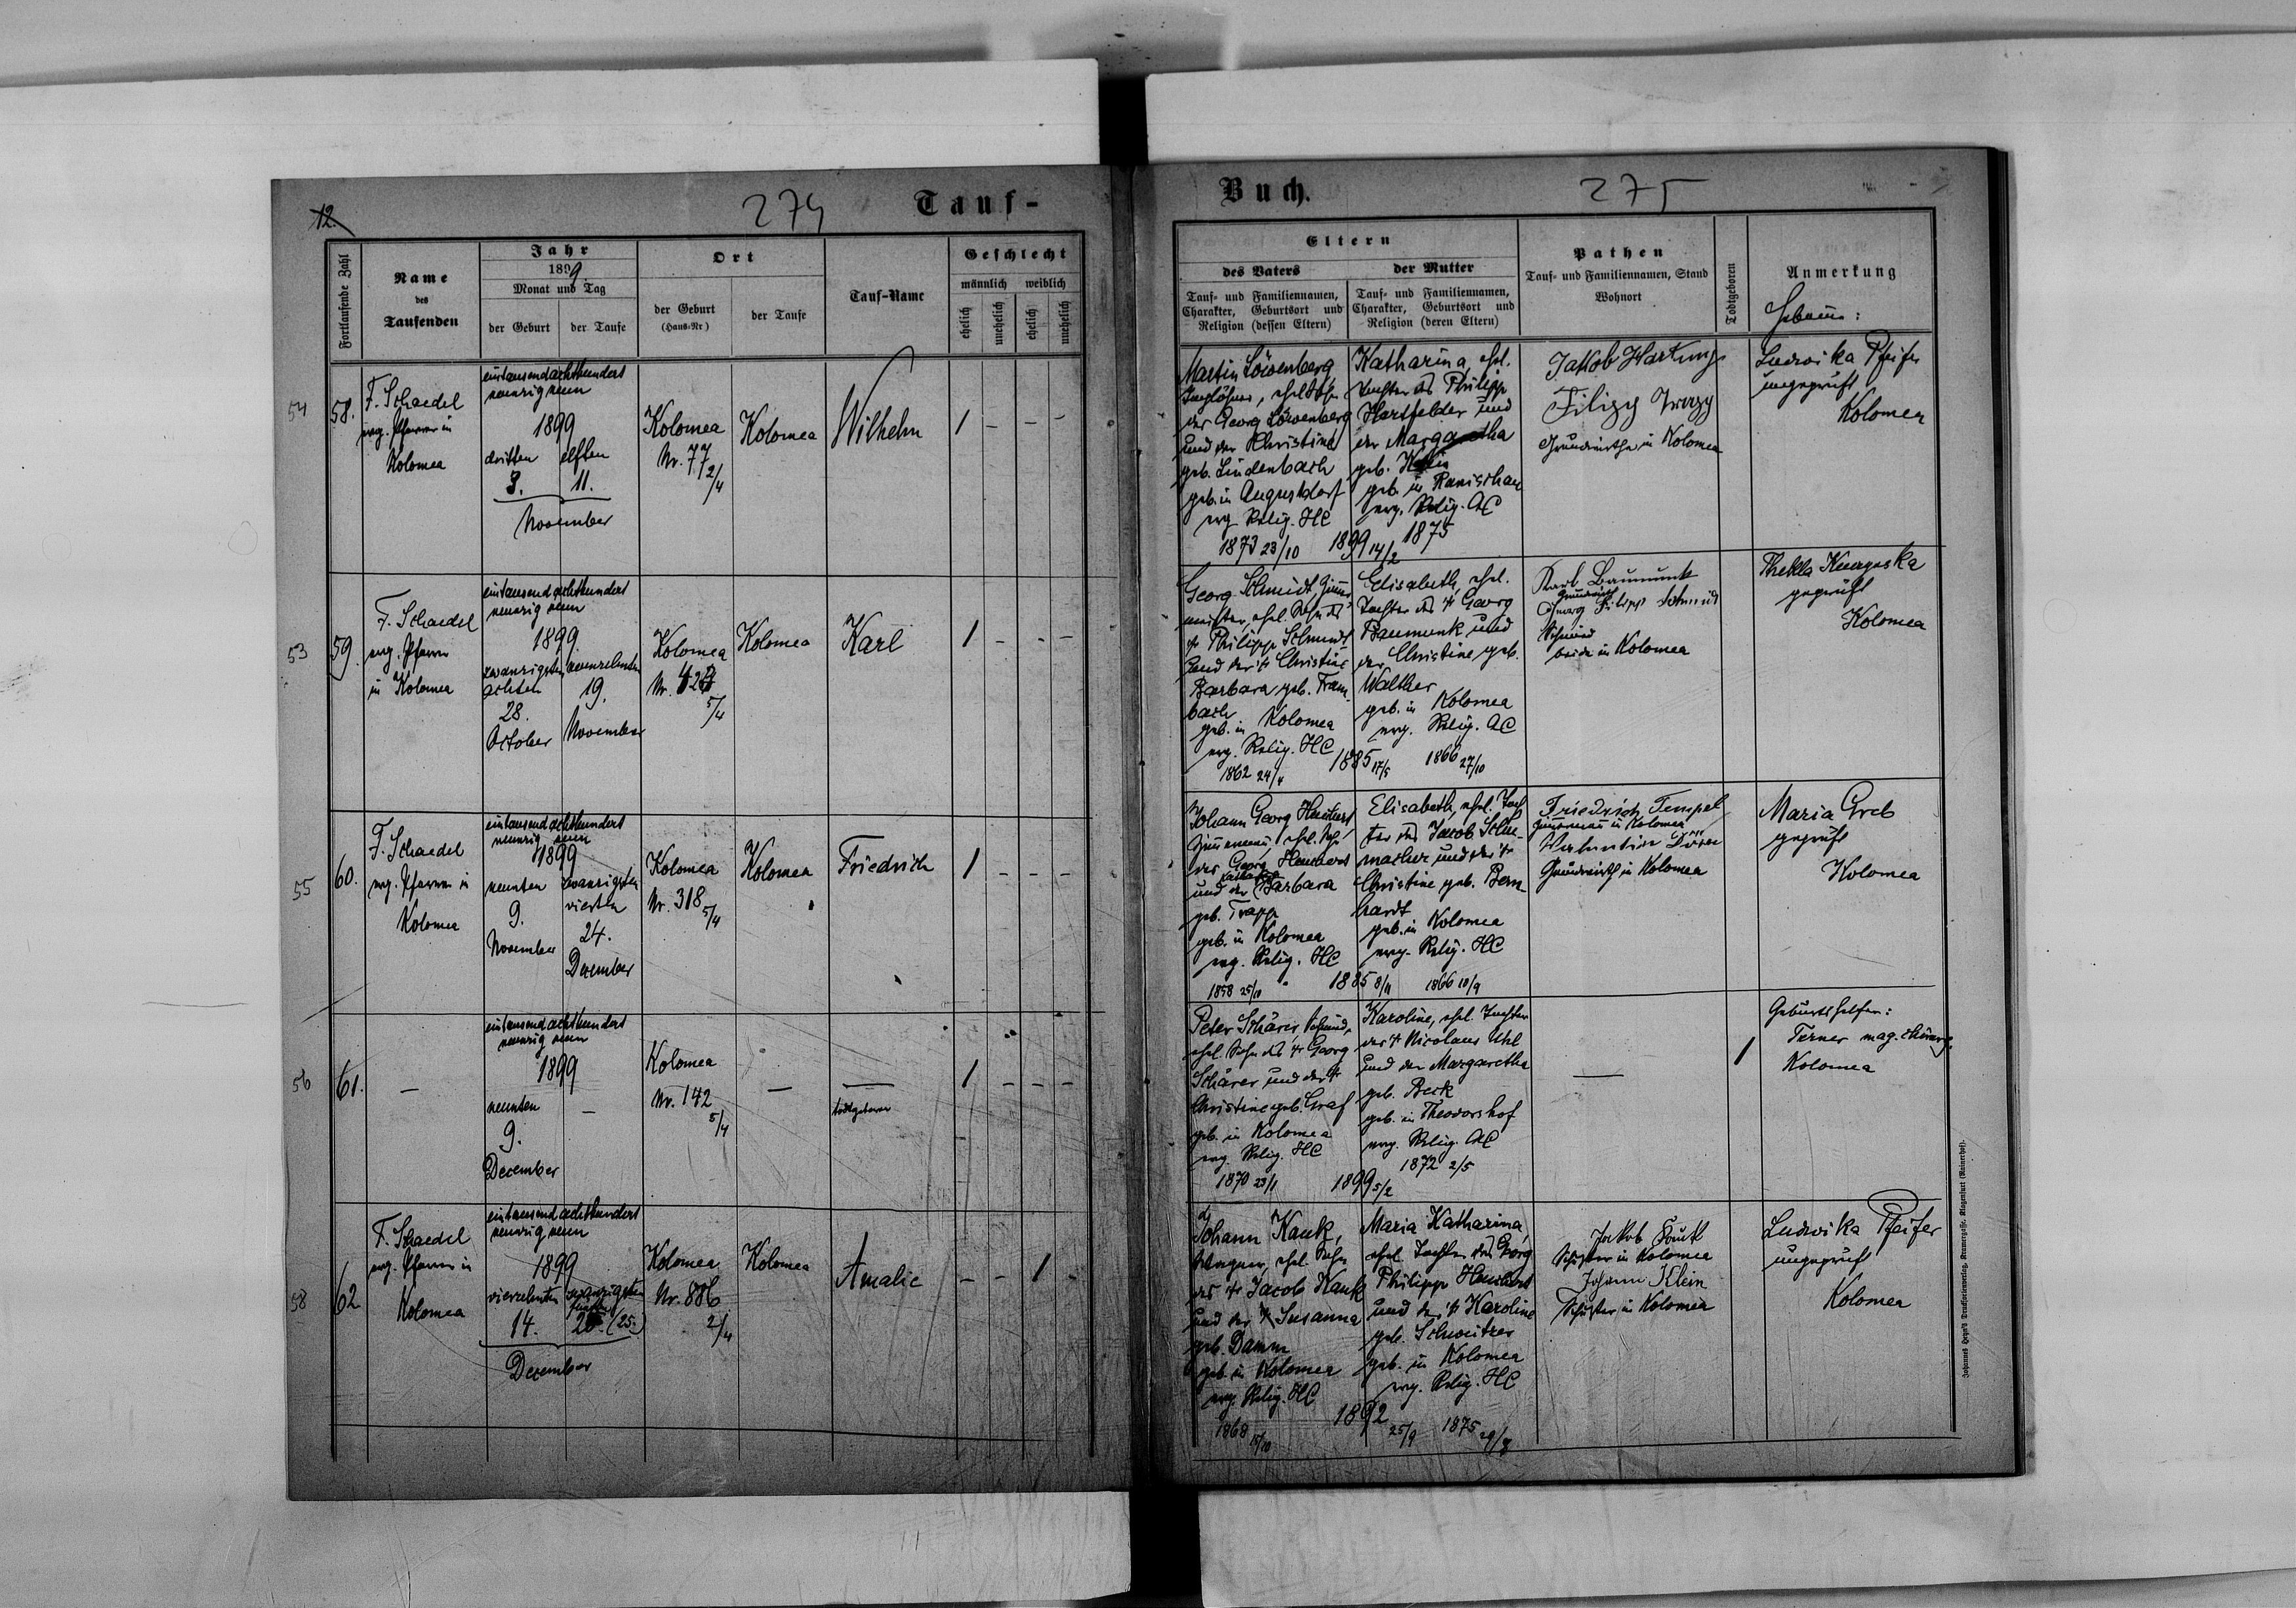 12.
274
Tauf-
Fortlaufende Zahl
Name
des
Taufenden
Jahr
1899
Monat und Tag
der Geburt
der Taufe
Ort
der Geburt
(Haus-Nr)
der Taufe
Tauf-Name
Geschlecht
männlich
weiblich
ehelich
unehelich
ehelich
unehelich
54
58.
F. Schaedel
evg. Pfarrer in
Kolomea
eintausendachthundert
neunzig neun
1899
dritten elften
3. 11.
November
Kolomea
Nr. 77
2/4
Kolomea
Wilhelm
1 – – –
53
59.
F. Schaedel
evg. Pfarrer
in Kolomea
eintausend achthundert
neunzig neun
1899
zwanzigsten neunzehnten
achten 19.
28.
October November
Kolomea
Nr.
5/4
Kolomea
Karl
1 – – –
55
60.
F. Schaedel
evg. Pfarrer in
Kolomea
eintausend achthundert
neunzig neun
1899
neunten zwanzigsten
vierten
9.
24.
November
December
Kolomea
Nr. 318
5/4
Kolomea
Friedrich
1 – – –
56
61.
–
eintausend achthundert
neunzig neun
1899
neunten –
9.
December
Kolomea
Nr. 142
5/4
–
–
todtgeboren
1 – – –
58
62
F. Schaedel
evg. Pfarrer in
Kolomea
eintausend achthundert
neunzig neun
1899
vierzehnten zwanzigsten
fünften
14. 25. (25.)
December
Kolomea
Nr. 886
2/4
Kolomea
Amalie
– – 1 –
Buch.
275
Eltern
des Vaters
der Mutter
Tauf- und Familiennamen,
Charakter, Geburtsort und
Religion (dessen Eltern)
Tauf- und Familiennamen,
Charakter, Geburtsort und
Religion (deren Eltern)
Pathen
Tauf- und Familiennamen, Stand
Wohnort
Todtgeboren
Anmerkung
Hebamme:
Martin Löwenberg
Taglöhner, ehel. Sohn
des Georg Löwenberg
und der Christine
geb. Lindenbach
geb. in Augustdorf
evg. Relig. HC
1873 23/10
1899 14/2
Katharina, ehel.
Tochter des Philipp
Hartfelder und
der Margaretha
geb.
geb. in Ranischau
evg. Relig. AC
1875
Jakob Hartung
Filipp
Grundwirthe in Kolomea
Ludwika Pfeifer
ungeprüft
Kolomea
Georg Schmidt, Zimmer-
meister, ehel. Sohn des
† Philipp Schmidt
und der † Christine
Barbara geb. Tram-
bach
geb. in Kolomea
evg. Relig. HC
1862 24/4
1885 17/5
Elisabeth, ehel.
Tochter des † Georg
Baumunk und
der Christine, geb.
Walther
geb. in Kolomea
evg. Relig. AC
1866 27/10
Karl Baumunk
Grundwirth
Filipp Schmidt
Schmied
beide in Kolomea
Thekla
geprüft
Kolomea
Johann Georg
Zimmermann, ehel. Sohn
des Georg
und der Barbara
geb. Trapp
geb. in Kolomea
evg. Relig. HC
1858 25/10
1885 8/11
Elisabeth, ehel. Toch-
ter des Jacob Schu-
macher und der †
Christine geb. Bern-
hardt
geb. in Kolomea
evg. Relig. HC
1866 10/9
Friedrich Tempel
Zimmermann in Kolomea
Valentin
Grundwirth in Kolomea
Maria Greb
geprüft
Kolomea
Peter Schärer, Schmied,
ehel. Sohn des † Georg
Schärer und der †
Christine geb. Graf
geb. in Kolomea
evg. Relig. HC
1870 23/1
1899 5/2
Karoline, ehel. Tochter
des † Nicolaus Uhl
und der Margaretha
geb. Beck
geb. in Theodorshof
evg. Relig. AC
1872 2/5
–
1
Geburtshelfer:
Terner mag. chirurg.
Kolomea
Johann Kauk,
Wagner, ehel. Sohn
des † Jacob Kauk
und der † Susanna
geb. Damm
geb. in Kolomea
evg. Relig. HC
1868
1892 25/9
Maria Katharina,
ehel. Tochter des Georg
Philipp
und der † Karoline
geb. Schweitzer
geb. in Kolomea
evg. Relig. HC
1875
Jakob
Schuster in Kolomea
Johann Klein
Schuster in Kolomea
Ludwika Pfeifer
ungeprüft
Kolomea